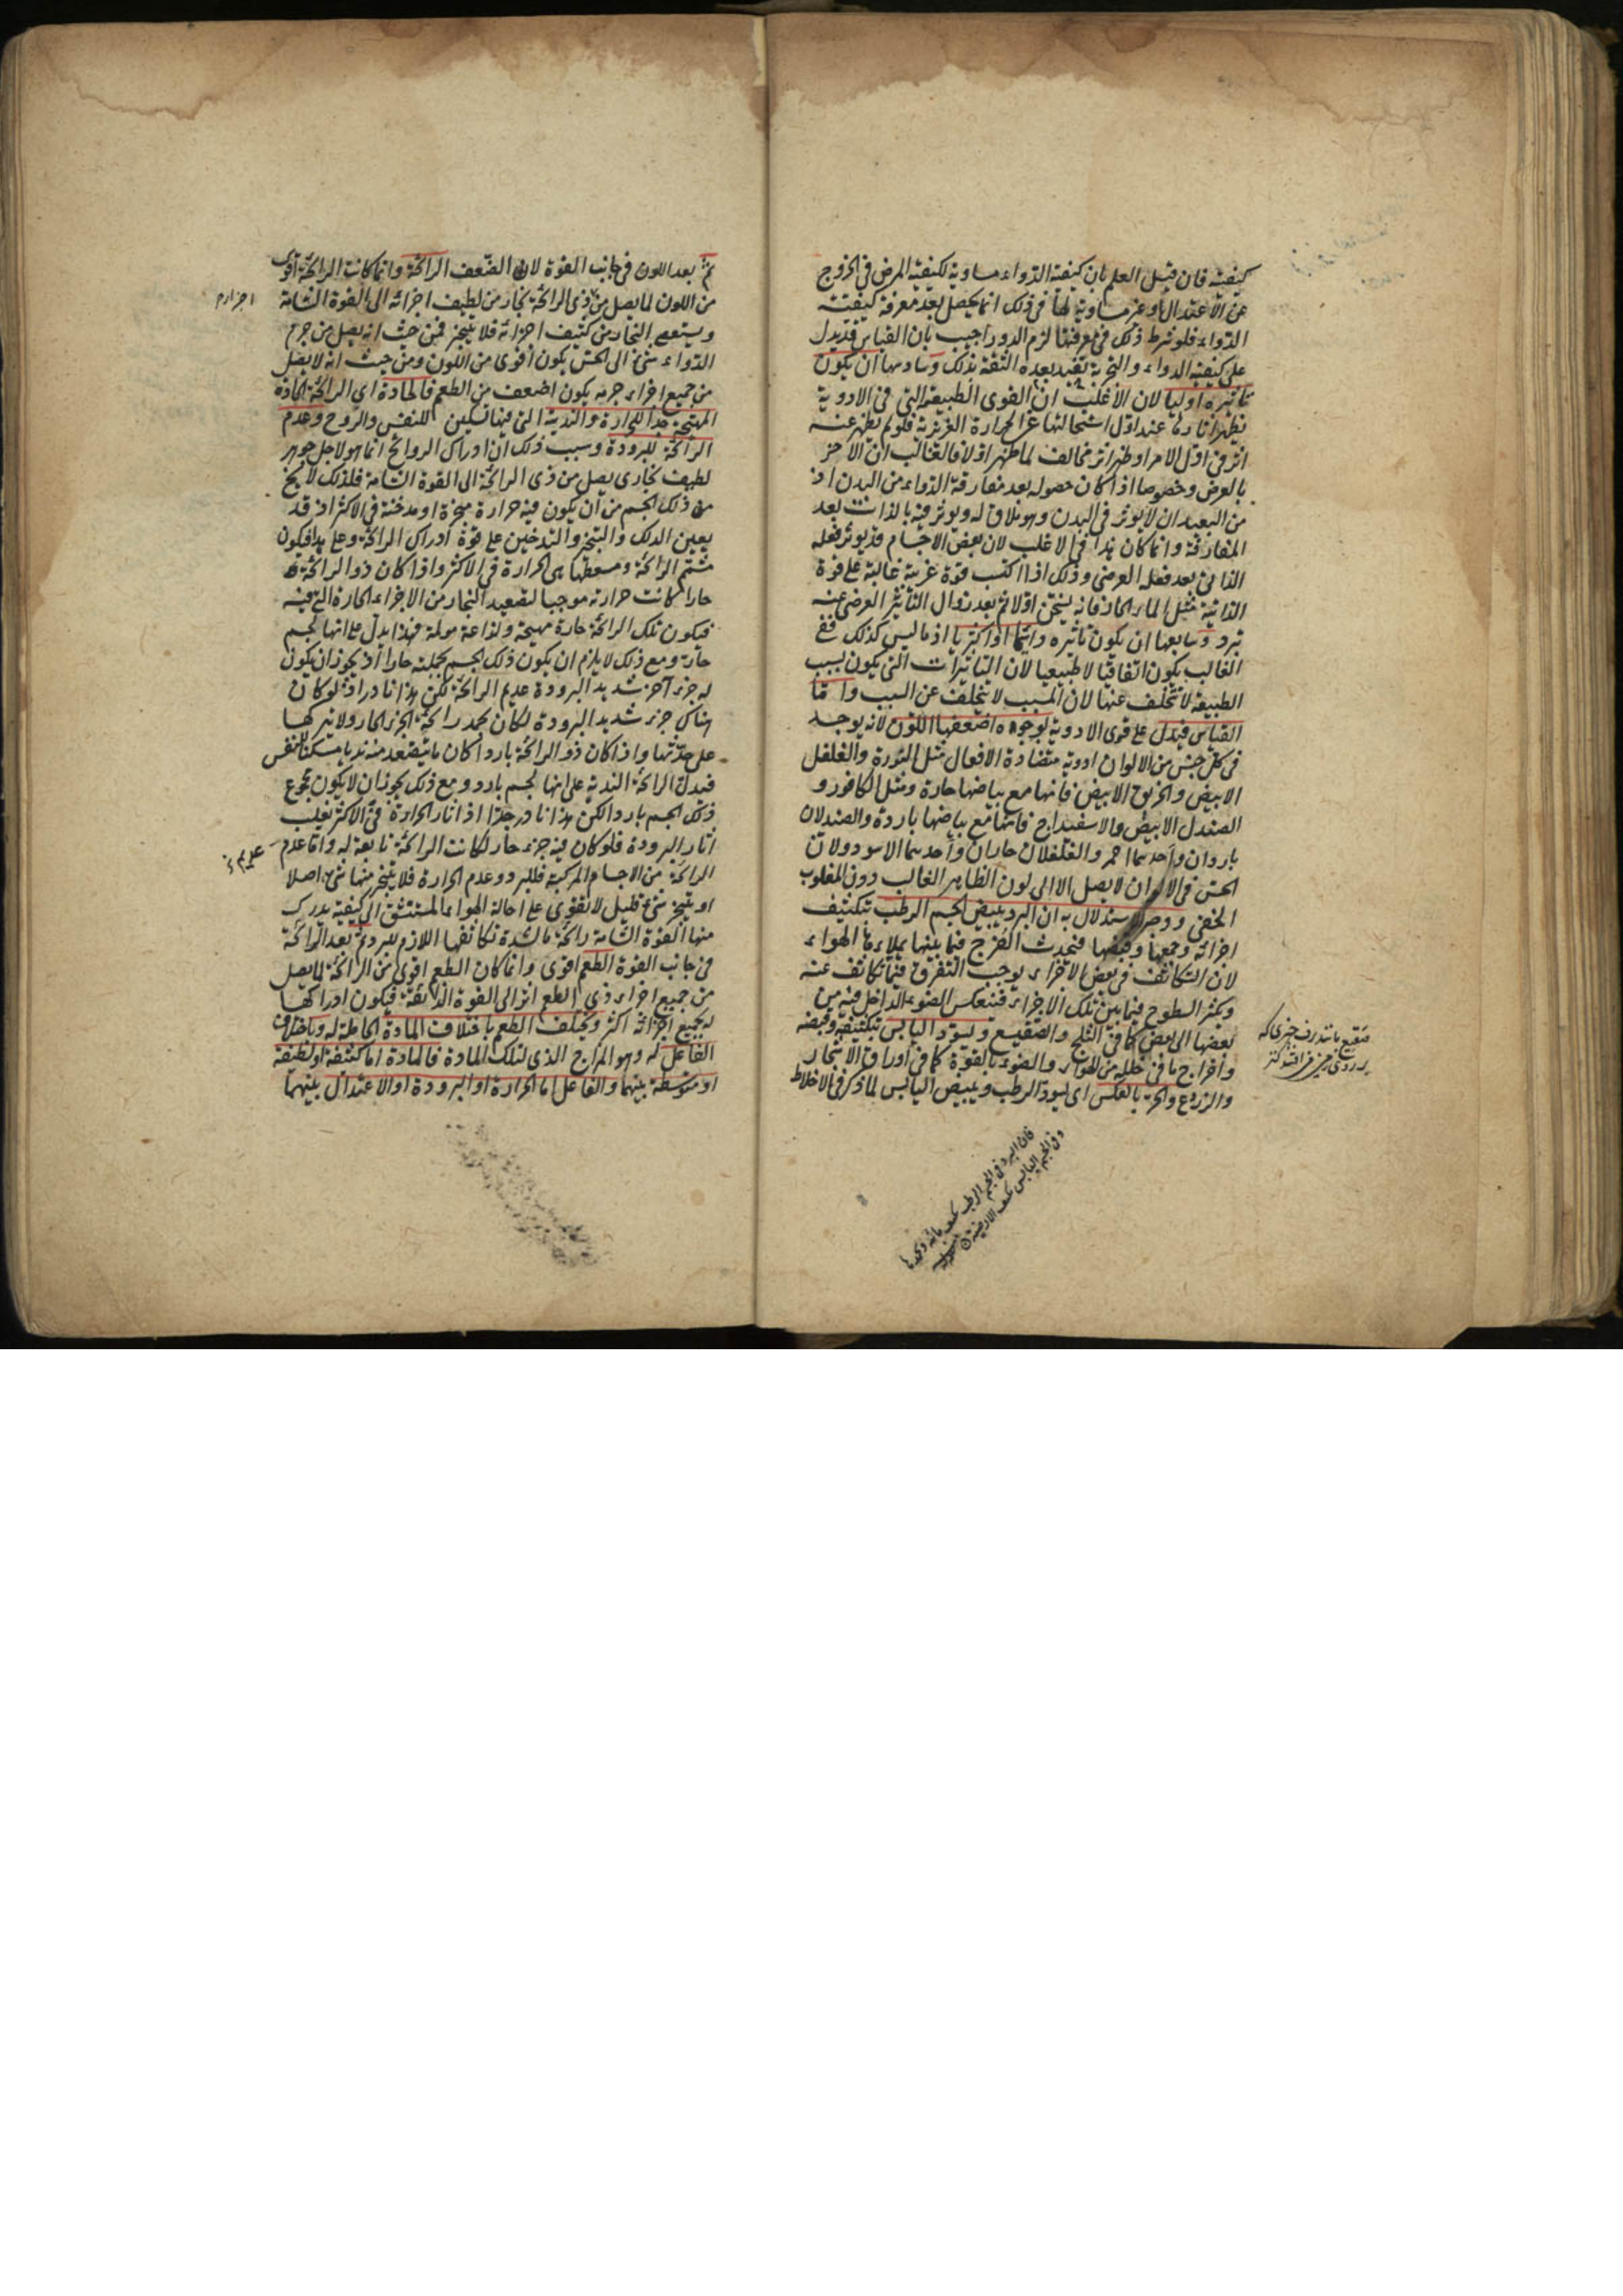 كيفيته فان قيل العلم بان كيفية الدواء مساوية لكيفية المرض في الخروج
عن الاعتدال او غير مساوية لها في ذلك انما يحصل بعد معرفة كيفيته
الدواء فلو شرط ذلك في معرفتها لزم الدور اجيب بان القياس قد يدل
على كيفية الدواء والتجربة تفيد بعده الثقة بذلك وسادسها ان يكون
تاثيره اوليا لان الاغلب ان القوى الطبيعية التي في الادوية
يظهر آثارها عند اول استحالتها عن الحرارة الغريزية فلو لم يظهر عنه
اثر في اول الامر او ظهر اثر مخالف لما ظهر اولا فالغالب ان الاخر
بالعرض وخصوصا اذا كان حصوله بعد مفارقة الدواء من البدن اذ
من البعيد ان لا يوثر في البدن وهو ملاق له ويوثر فيه بالذات بعد
المفارقة وانما كان هذا في الاغلب لان بعض الاجسام قد يوثر فعله
الذاتي بعد فعله العرضي وذلك اذا اكتسب قوة غريبة غالبة على قوة
الذاتية مثل الماء الحار فانه يسخن اولا ثم بعد زوال التاثير العرضي عنه
تبرد وسابعها ان يكون تاثيره دائما او اكثريا اذ ما ليس كذلك ففي
الغالب يكون اتفاقيا لا طبيعيا لان التاثيرات التي يكون بسبب
الطبيعة لا تتخلف عنها لان المسبب لا يتخلف عن السبب واما
القياس فيدل على قوى الادوية بوجوه اضعفها اللون لانه يوجد
في كل جنس من الالوان ادوية متضادة الافعال مثل النورة والفلفل
الابيض والخربق الابيض فانها مع بياضها حارة ومثل الكافور و
الصندل الابيض والاسفيداج فانها مع بياضها باردة والصندلان
باردان واحدهما احمر والفلفلان حاران واحدهما الاسود ولان
الحس في الالوان لا يصل الا الى لون الظاهر الغالب دون المغلوب
الخفي ووجه الاستدلال به ان البرد يبيض الجسم الرطب بتكثيف
اجزائه وجمعها وقبضها فيحدث الفرج فيما بينها يملاءها الهواء
لان التكاثف في بعض الاجزاء يوجب التفرق فيما تكاثف عنه
وتكثر السطوح فيما بين تلك الاجزاء فينعكس الضوء الداخل فيه من
بعضها الى بعض كما في الثلج والصقيع ويسود اليابس بتكثيفه وقبضه
واخراج ما في خلله من الهواء والضوء بالقوة كما في اوراق الاشجار
والزروع والحر بالعكس اى يسود الرطب ويبيض اليابس لما ذكر في الاخلاط
فان البرد في الجسم الرطب
وفي الجسم اليابس
ثم بعد اللون في جانب القوة لا في الضعف الرائحة وانما كانت الرائحة اقوى
من اللون لما يصل من ذي الرائحة بخار من لطيف اجزائه الى القوة الشامة
ويستعصي البخار من كثيف اجزائه فلا يتبخر فمن حيث انه يصل من جرم
الدواء شئ الى الحس يكون اقوى من اللون ومن حيث انه لا يصل
من جميع اجزاء جرمه يكون اضعف من الطعم فالحادة اى الرائحة الحادة
المهيجة جدا للحرارة والندية التي فيها تسكين للنفس والروح وعدم
الرائحة للبرودة وسبب ذلك ان ادراك الروائح انما هو لاجل جوهر
لطيف بخاري يصل من ذي الرائحة الى القوة الشامة فلذلك لا يخ
من ذلك الجسم من ان يكون فيه حرارة مبخرة او مدخنة في الاكثر اذ قد
يعين الدلك والتبخير والتدخين على قوة ادراك الرائحة وعلى هذا فيكون
مشتم الرائحة ومسعطها هى الحرارة في الاكثر واذا كان ذو الرائحة
حارا كانت حرارته موجبا لتصعيد البخار من الاجزاء الحارة التي فيه
فيكون تلك الرائحة حارة مهيجة ولذاعة مولمة فهذا يدل على انها لجسم
حار ومع ذلك لا يلزم ان يكون ذلك الجسم بجملته حارا اذ يجوز ان يكون
له جزء آخر شديد البرودة عديم الرائحة لكن هذا نادر اذ لو كان
هناك جزء شديد البرودة لكان يخمد رائحة الجزء الحار ولا يتركها
على حدتها واذا كان ذو الرائحة باردا كان ما يتصعد منه نديا مسكنا للنفس
فيدل الرائحة الندية على انها لجسم بارد ومع ذلك يجوز ان لا يكون مجموع
ذلك الجسم باردا لكن هذا نادر جدا اذ آثار الحرارة في الاكثر تغلب
آثار البرودة فلو كان فيه جزء حار لكانت الرائحة تابعة له واما عدم
الرائحة من الاجسام المركبة فللبرد وعدم الحرارة فلا يتبخر منها شئ اصلا
او يتبخر شئ قليل لا يقوى على احالة الهواء المستنشق الى كيفية يدرك
منها القوة الشامة رائحة ما لشدة تكاثفها اللازم للبرد ثم بعد الرائحة
في جانب القوة الطعم اقوى وانما كان الطعم اقوى من الرائحة لما يصل
من جميع اجزاء ذي الطعم اثر الى القوة الذائقة فيكون ادراكها
له بجميع اجزائه اكثر ويختلف الطعم باختلاف المادة الحاملة له وباختلاف
الفاعل له وهو المزاج الذي لتلك المادة فالمادة اما كثيفة او لطيفة
او متوسطة بينهما والفاعل اما الحرارة او البرودة او الاعتدال بينهما